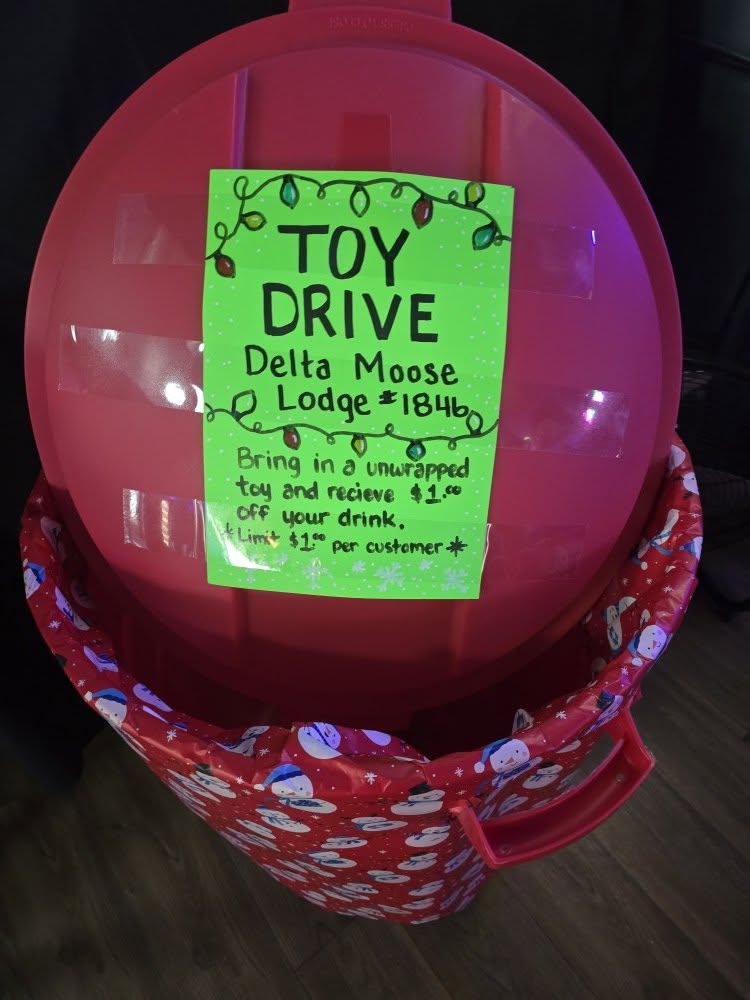 TOY
DRIVE
Delta Moose
Lodge #1846
Bring in a unwrapped
toy and recieve $1.00
off your drink.
*Limit $1.00 per customer*